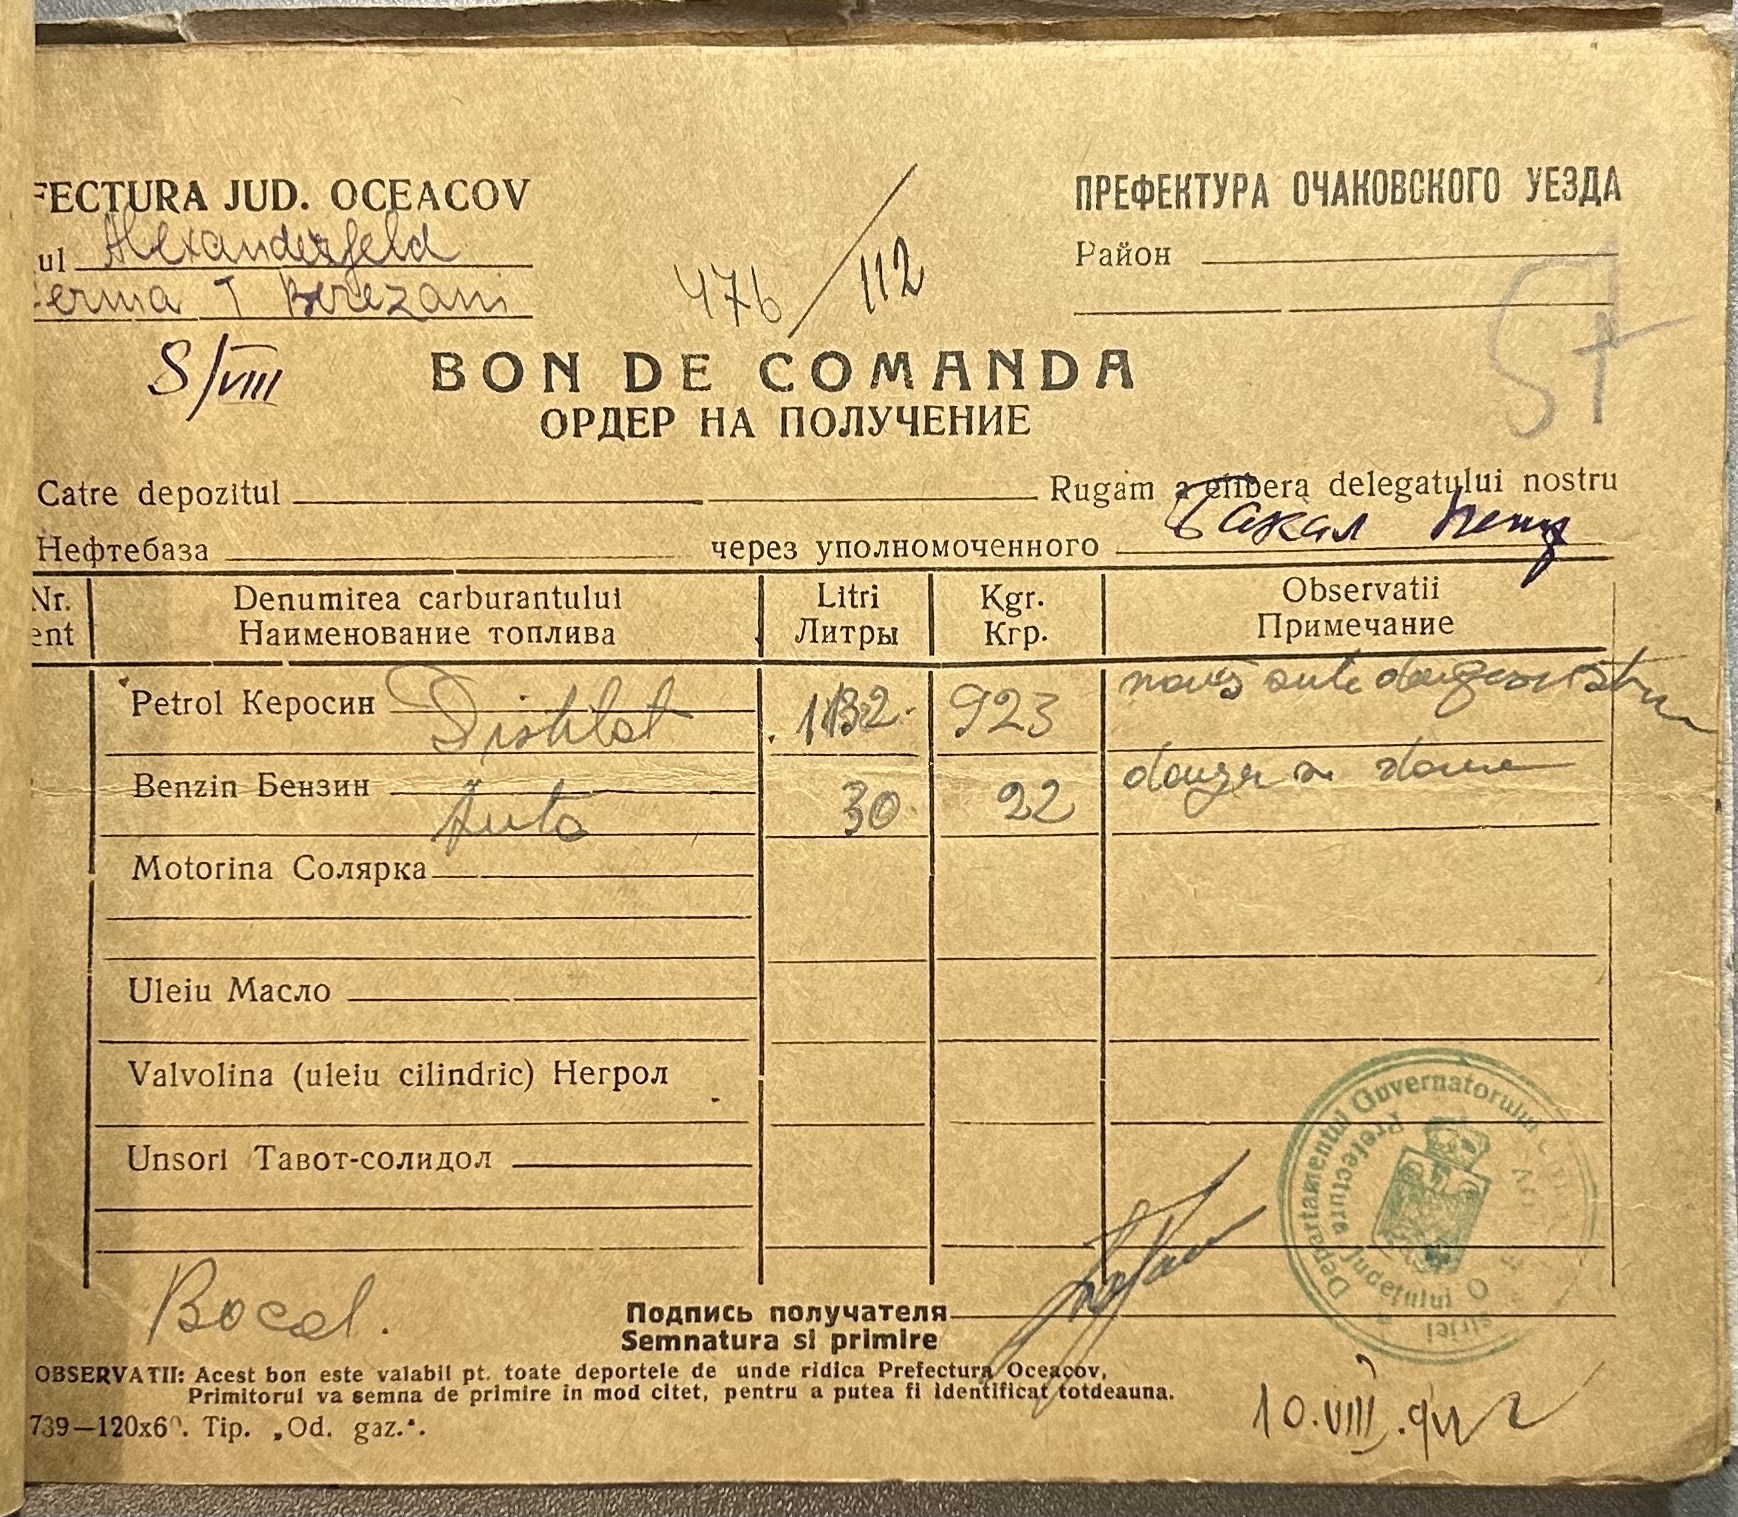 FECTURA JUD. OCEACOV
ПРЕФЕКТУРА ОЧАКОВСКОГО УЕЗДА
ul Alexanderfeld
Район
erma T Berezani
476/112
S/VIII
57
BON DE COMANDA
ОРДЕР НА ПОЛУЧЕНИЕ
Catre depozitul Rugam a elibera delegatului nostru
Нефтебаза через уполномоченного Бакал
Nr. Denumirea carburantului Litri Kgr. Observatii
ent Наименование топлива Литры Кгр. Примечание
Petrol Керосин 1132 923
Benzin Бензин Auto 30 22
Motorina Солярка
Uleiu Масло
Valvolina (uleiu cilindric) Негрол
Unsori Тавот-солидол
Departamentul Guvernatorului
Prefectura Județului O
Bocal.
Подпись получателя
Semnatura si primire
OBSERVATII: Acest bon este valabil pt. toate deportele de unde ridica Prefectura Oceacov,
Primitorul va semna de primire in mod citet, pentru a putea fi identificat totdeauna.
739—120x60. Tip. „Od. gaz.“.
10.VIII.942